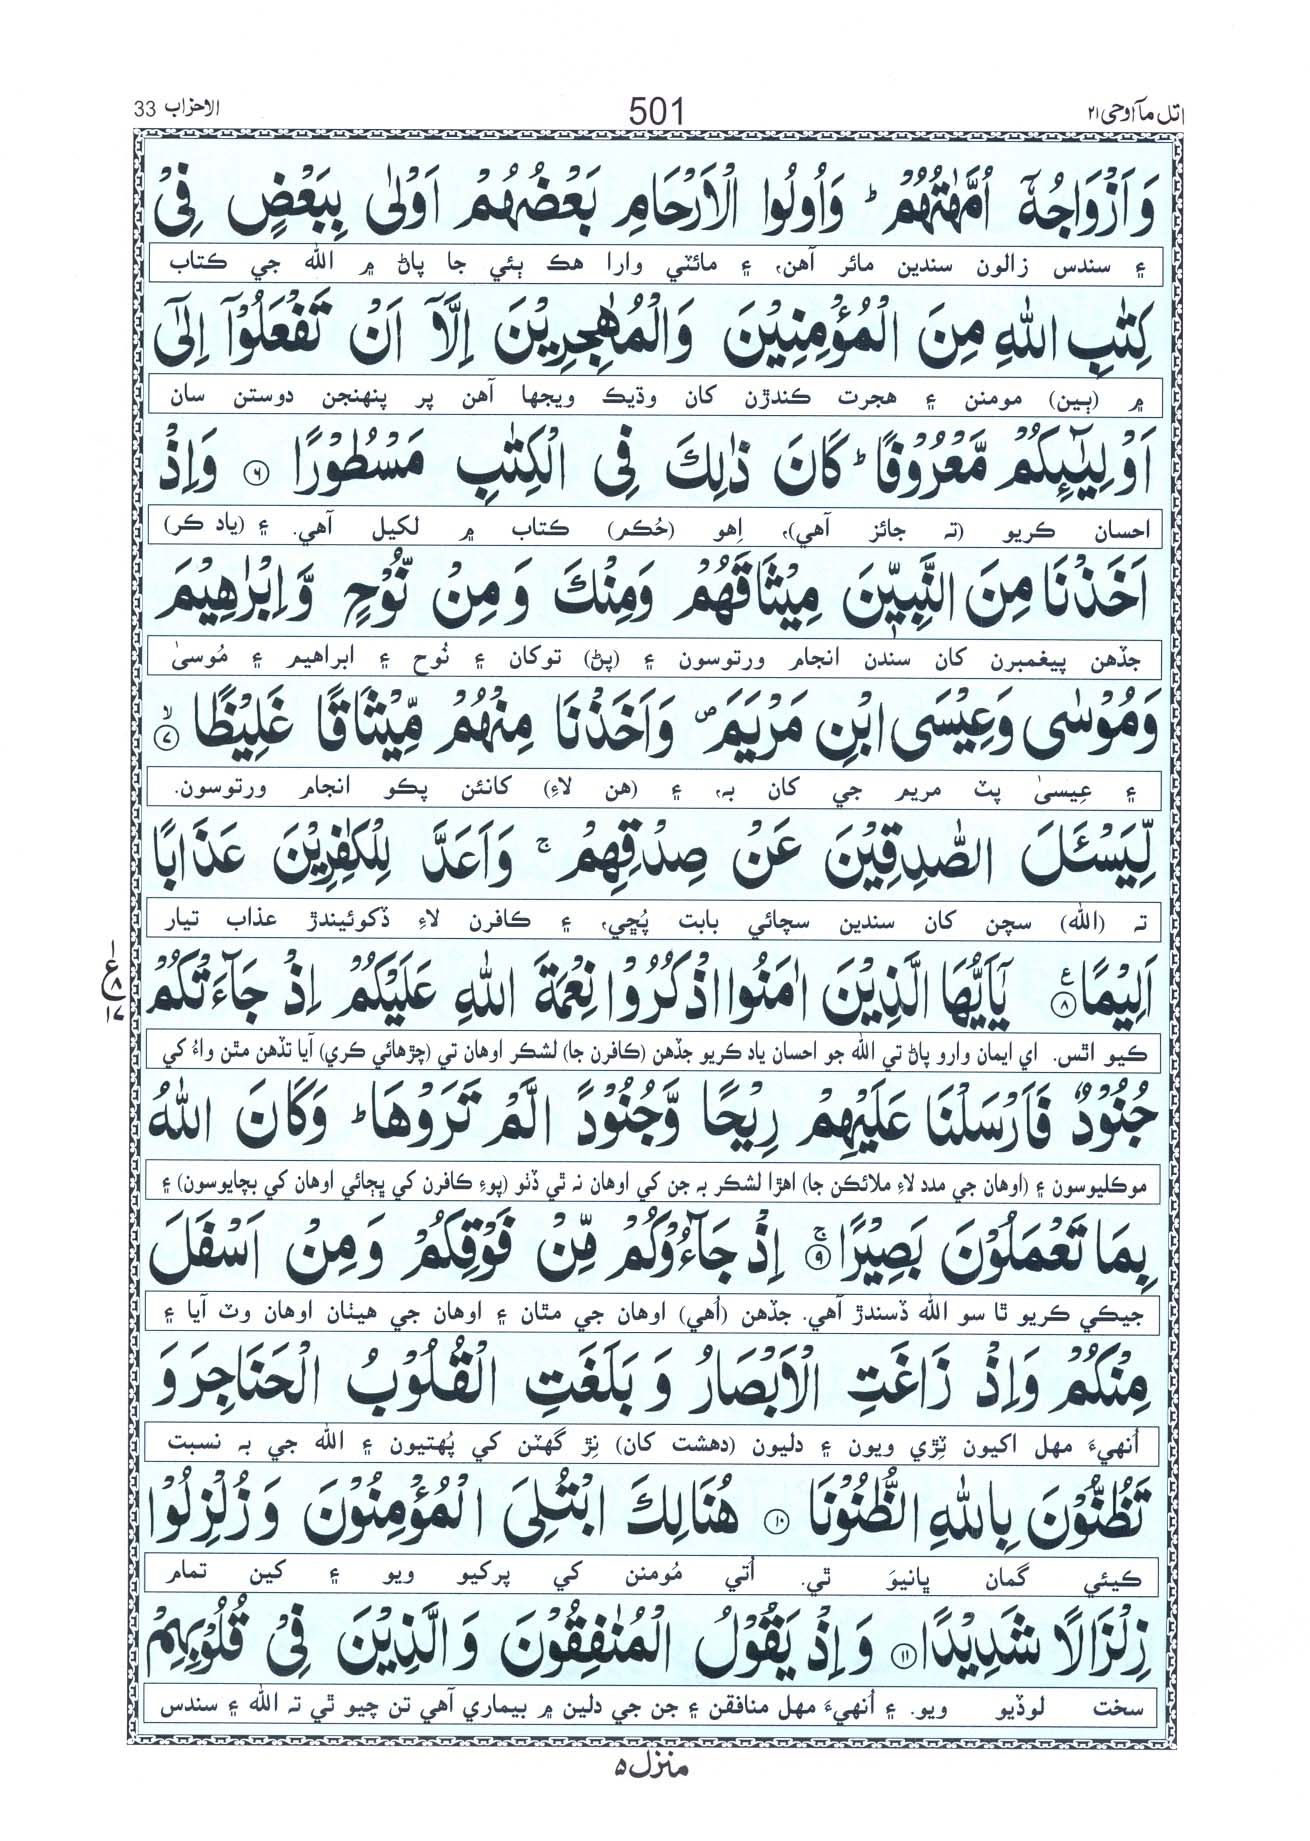 اتل مآ اوحی ۲۱
501
الاحزاب 33
وَاَزْوَاجُهٗۤ اُمَّهٰتُهُمْ ؕ وَاُولُوا الْاَرْحَامِ بَعْضُهُمْ اَوْلٰی بِبَعْضٍ فِیْ
۽ سندس زالون سندين مائر آهن، ۽ مائٽي وارا هڪ ٻئي جا پاڻ ۾ الله جي ڪتاب
كِتٰبِ اللهِ مِنَ الْمُؤْمِنِيْنَ وَالْمُهٰجِرِيْنَ اِلَّاۤ اَنْ تَفْعَلُوْۤا اِلٰۤی
۾ (ٻين) مومنن ۽ هجرت ڪندڙن کان وڌيڪ ويجها آهن پر پنهنجن دوستن سان
اَوْلِيٰٓئِكُمْ مَّعْرُوْفًا ؕ كَانَ ذٰلِكَ فِی الْكِتٰبِ مَسْطُوْرًا ۶ وَاِذْ
احسان ڪريو (تہ جائز آهي)، اِهو (حُڪم) ڪتاب ۾ لکيل آهي. ۽ (ياد ڪر)
اَخَذْنَا مِنَ النَّبِيّٖنَ مِيْثَاقَهُمْ وَمِنْكَ وَمِنْ نُّوْحٍ وَّاِبْرٰهِيْمَ
جڏهن پيغمبرن کان سندن انجام ورتوسون ۽ (پڻ) توکان ۽ نُوح ۽ ابراهيم ۽ مُوسىٰ
وَمُوْسٰی وَعِيْسَی ابْنِ مَرْيَمَ ۪ وَاَخَذْنَا مِنْهُمْ مِّيْثَاقًا غَلِيْظًا ۙ۷
۽ عِيسىٰ پٽ مريم جي کان بہ، ۽ (هن لاءِ) کانئن پڪو انجام ورتوسون.
لِّيَسْئَلَ الصّٰدِقِيْنَ عَنْ صِدْقِهِمْ ۚ وَاَعَدَّ لِلْكٰفِرِيْنَ عَذَابًا
تہ (الله) سچن کان سندين سچائي بابت پُڇي، ۽ ڪافرن لاءِ ڏکوئيندڙ عذاب تيار
اَلِيْمًا ۸ ع يٰۤاَيُّهَا الَّذِيْنَ اٰمَنُوا اذْكُرُوْا نِعْمَةَ اللهِ عَلَيْكُمْ اِذْ جَآءَتْكُمْ
۱ ع ۸ ۱۷
ڪيو اٿس. اي ايمان وارو پاڻ تي الله جو احسان ياد ڪريو جڏهن (ڪافرن جا) لشڪر اوهان تي (چڙهائي ڪري) آيا تڏهن مٿن واءُ کي
جُنُوْدٌ فَاَرْسَلْنَا عَلَيْهِمْ رِيْحًا وَّجُنُوْدًا لَّمْ تَرَوْهَا ؕ وَكَانَ اللهُ
موڪليوسون ۽ (اوهان جي مدد لاءِ ملائڪن جا) اهڙا لشڪر بہ جن کي اوهان نہ ٿي ڏٺو (پوءِ ڪافرن کي ڀڄائي اوهان کي بچايوسون) ۽
بِمَا تَعْمَلُوْنَ بَصِيْرًا ۚ۹ اِذْ جَآءُوْكُمْ مِّنْ فَوْقِكُمْ وَمِنْ اَسْفَلَ
جيڪي ڪريو ٿا سو الله ڏسندڙ آهي. جڏهن (اُهي) اوهان جي مٿان ۽ اوهان جي هيٺان اوهان وٽ آيا ۽
مِنْكُمْ وَاِذْ زَاغَتِ الْاَبْصَارُ وَبَلَغَتِ الْقُلُوْبُ الْحَنَاجِرَ وَ
اُنهيءَ مهل اکيون ٽِڙي ويون ۽ دليون (دهشت کان) نِڙ گهٽن کي پُهتيون ۽ الله جي بہ نسبت
تَظُنُّوْنَ بِاللهِ الظُّنُوْنَا ۱۰ هُنَالِكَ ابْتُلِیَ الْمُؤْمِنُوْنَ وَزُلْزِلُوْا
ڪيئي گمان ڀانيوَ ٿي. اُتي مُومنن کي پرکيو ويو ۽ کين تمام
زِلْزَالًا شَدِيْدًا ۱۱ وَاِذْ يَقُوْلُ الْمُنٰفِقُوْنَ وَالَّذِيْنَ فِیْ قُلُوْبِهِمْ
سخت لوڏيو ويو. ۽ اُنهيءَ مهل منافقن ۽ جن جي دلين ۾ بيماري آهي تن چيو ٿي تہ الله ۽ سندس
منزل ۵